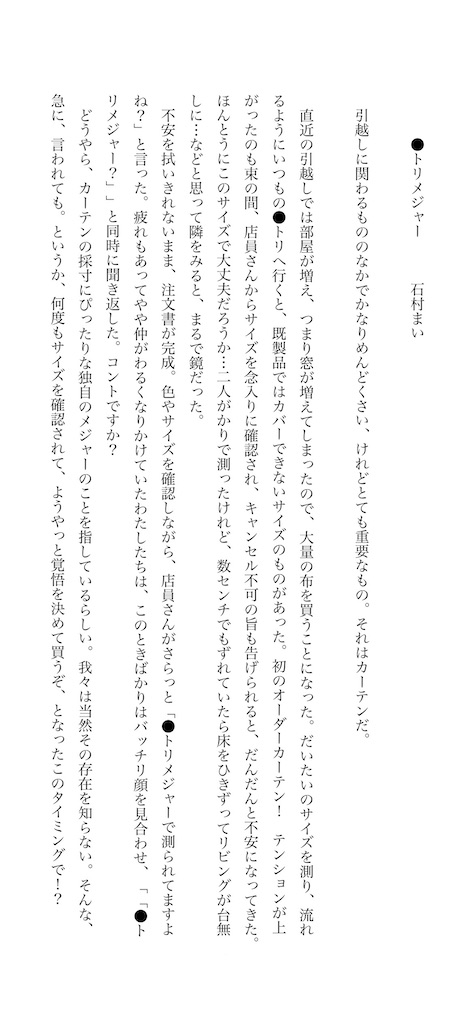 ●トリメジャー　　石村まい
引越しに関わるもののなかでかなりめんどくさい、けれどとても重要なもの。それはカーテンだ。
直近の引越しでは部屋が増え、つまり窓が増えてしまったので、大量の布を買うことになった。だいたいのサイズを測り、流れ
るようにいつもの●トリへ行くと、既製品ではカバーできないサイズのものがあった。初のオーダーカーテン！　テンションが上
がったのも束の間、店員さんからサイズを念入りに確認され、キャンセル不可の旨も告げられると、だんだんと不安になってきた。
ほんとうにこのサイズで大丈夫だろうか…二人がかりで測ったけれど、数センチでもずれていたら床をひきずってリビングが台無
しに…などと思って隣をみると、まるで鏡だった。
不安を拭いきれないまま、注文書が完成。色やサイズを確認しながら、店員さんがさらっと「●トリメジャーで測られてますよ
ね？」と言った。疲れもあってやや仲がわるくなりかけていたわたしたちは、このときばかりはバッチリ顔を見合わせ、「「●ト
リメジャー？」」と同時に聞き返した。コントですか？
どうやら、カーテンの採寸にぴったりな独自のメジャーのことを指しているらしい。我々は当然その存在を知らない。そんな、
急に、言われても。というか、何度もサイズを確認されて、ようやっと覚悟を決めて買うぞ、となったこのタイミングで！？